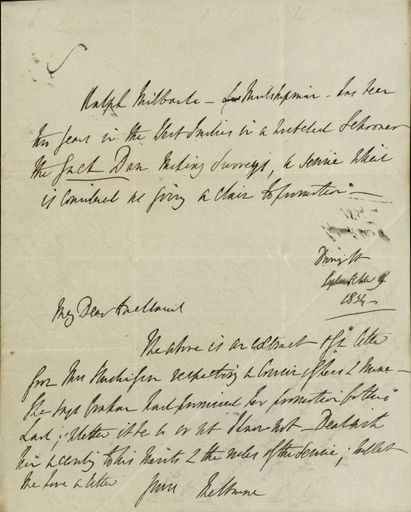 Ralph Milbanke - Midshipman - has been
two years in the West Indies in a wretched Schooner
the Jack Daw making Surveys, a service which
is considered as giving a claim to promotion -
Downing St
September 9
1834
My Dear Auckland
The above is an extract of a letter
from Mrs respecting a Cousin of hers & mine -
She says Graham had promised her promotion for this
Lad; whether it be so or not I know not - Deal with
him according to his merits & the rules of the Service; but let
me have a letter
yours Melbourne